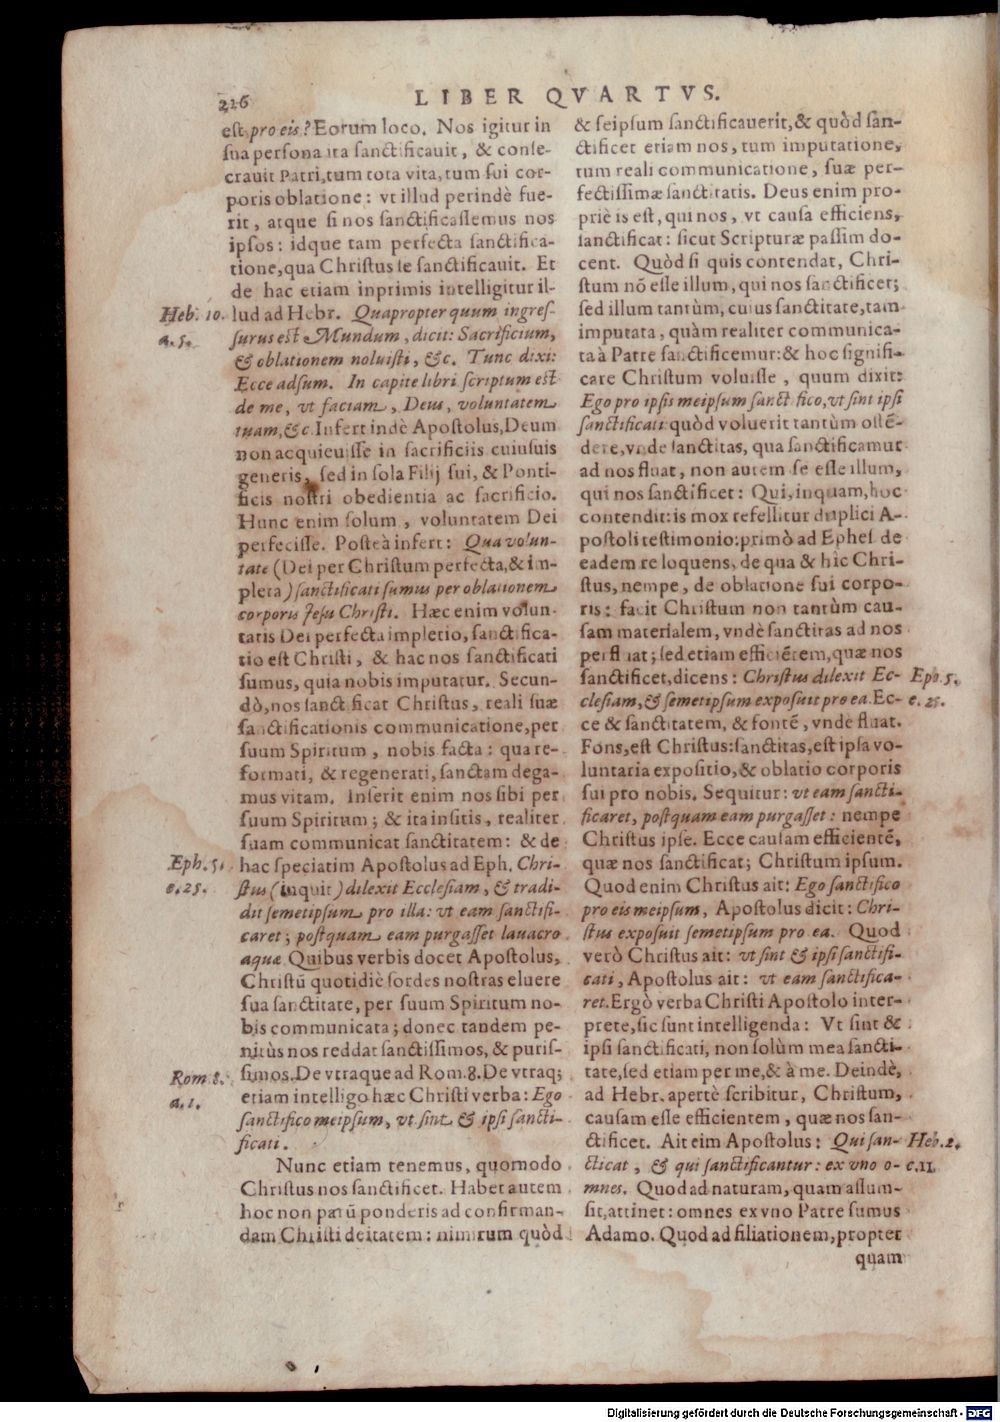 216
LIBER QVARTVS.
est pro eis? Eorum loco. Nos igitur in
sua persona ita sanctificauit, & conse-
crauit Patri, tum tota vita, tum sui cor-
poris oblatione: vt illud perindè fue-
rit, atque si nos sanctificassemus nos
ipsos: idque tam perfecta sanctifica-
tione, qua Christus se sanctificauit. Et
de hac etiam inprimis intelligitur il-
Heb. 10. lud ad Hebr. Quapropter quum ingres-
a. 5. surus est Mundum, dicit: Sacrificium,
& oblationem noluisti, &c. Tunc dixi:
Ecce adsum. In capite libri scriptum est
de me, vt faciam, Deus, voluntatem
tuam, &c. Infert indè Apostolus, Deum
non acquieuisse in sacrificiis cuiusuis
generis, sed in sola Filij sui, & Ponti-
ficis nostri obedientia ac sacrificio.
Hunc enim solum, voluntatem Dei
perfecisse. Posteà infert: Qua volun-
tate (Dei per Christum perfecta, & im-
pleta) sanctificati sumus per oblationem
corporis Jesu Christi. Hæc enim volun-
tatis Dei perfecta impletio, sanctifica-
tio est Christi, & hac nos sanctificati
sumus, quia nobis imputatur. Secun-
dò, nos sanctificat Christus, reali suæ
sanctificationis communicatione, per
suum Spiritum, nobis facta: qua re-
formati, & regenerati, sanctam dega-
mus vitam. Inserit enim nos sibi per
suum Spiritum; & ita insitis, realiter
suam communicat sanctitatem: & de
Eph. 5. hac speciatim Apostolus ad Eph. Chri-
e. 25. stus (inquit) dilexit Ecclesiam, & tradi-
dit semetipsum pro illa: vt eam sanctifi-
caret; postquam eam purgasset lauacro
aquæ. Quibus verbis docet Apostolus,
Christū quotidiè sordes nostras eluere
sua sanctitate, per suum Spiritum no-
bis communicata; donec tandem pe-
nitùs nos reddat sanctissimos, & puris-
Rom 8. simos. De vtraque ad Rom. 8. De vtraq;
a. 1. etiam intelligo hæc Christi verba: Ego
sanctifico meipsum, vt sint & ipsi sancti-
ficati.
Nunc etiam tenemus, quomodo
Christus nos sanctificet. Habet autem
hoc non parū ponderis ad confirman-
dam Christi deitatem: nimirum quòd
& seipsum sanctificauerit, & quòd san-
ctificet etiam nos, tum imputatione,
tum reali communicatione, suæ per-
fectissimæ sanctitatis. Deus enim pro-
priè is est, qui nos, vt causa efficiens,
sanctificat: sicut Scripturæ passim do-
cent. Quòd si quis contendat, Chri-
stum nō esse illum, qui nos sanctificet;
sed illum tantùm, cuius sanctitate, tam
imputata, quàm realiter communica-
ta à Patre sanctificemur: & hoc signifi-
care Christum voluisse, quum dixit:
Ego pro ipsis meipsum sanctifico, vt sint ipsi
sanctificati: quòd voluerit tantùm ostē-
dere, vnde sanctitas, qua sanctificamur
ad nos fluat, non autem se esse illum,
qui nos sanctificet: Qui, inquam, hoc
contendit: is mox refellitur duplici A-
postoli testimonio: primò ad Ephes de
eadem re loquens, de qua & hîc Chri-
stus, nempe, de oblatione sui corpo-
ris: facit Christum non tantùm cau-
sam materialem, vndè sanctitas ad nos
perfluat; sed etiam efficiētem, quæ nos
sanctificet, dicens: Christus dilexit Ec- Eph. 5.
clesiam, & semetipsum exposuit pro ea. Ec- e. 25.
ce & sanctitatem, & fontē, vnde fluat.
Fons, est Christus: sanctitas, est ipsa vo-
luntaria expositio, & oblatio corporis
sui pro nobis. Sequitur: vt eam sancti-
ficaret, postquam eam purgasset: nempe
Christus ipse. Ecce causam efficientē,
quæ nos sanctificat; Christum ipsum.
Quod enim Christus ait: Ego sanctifico
pro eis meipsum, Apostolus dicit: Chri-
stus exposuit semetipsum pro ea. Quod
verò Christus ait: vt sint & ipsi sanctifi-
cati, Apostolus ait: vt eam sanctifica-
ret. Ergò verba Christi Apostolo inter-
prete, sic sunt intelligenda: Vt sint &
ipsi sanctificati, non solùm mea sancti-
tate, sed etiam per me, & à me. Deindè,
ad Hebr. apertè scribitur, Christum,
causam esse efficientem, quæ nos san-
ctificet. Ait eim Apostolus: Qui san- Heb. 2.
cticat, & qui sanctificantur: ex vno o- c. 11
mnes. Quod ad naturam, quam assum-
sit, attinet: omnes ex vno Patre sumus
Adamo. Quod ad filiationem, propter
quam
Digitalisierung gefördert durch die Deutsche Forschungsgemeinschaft - DFG